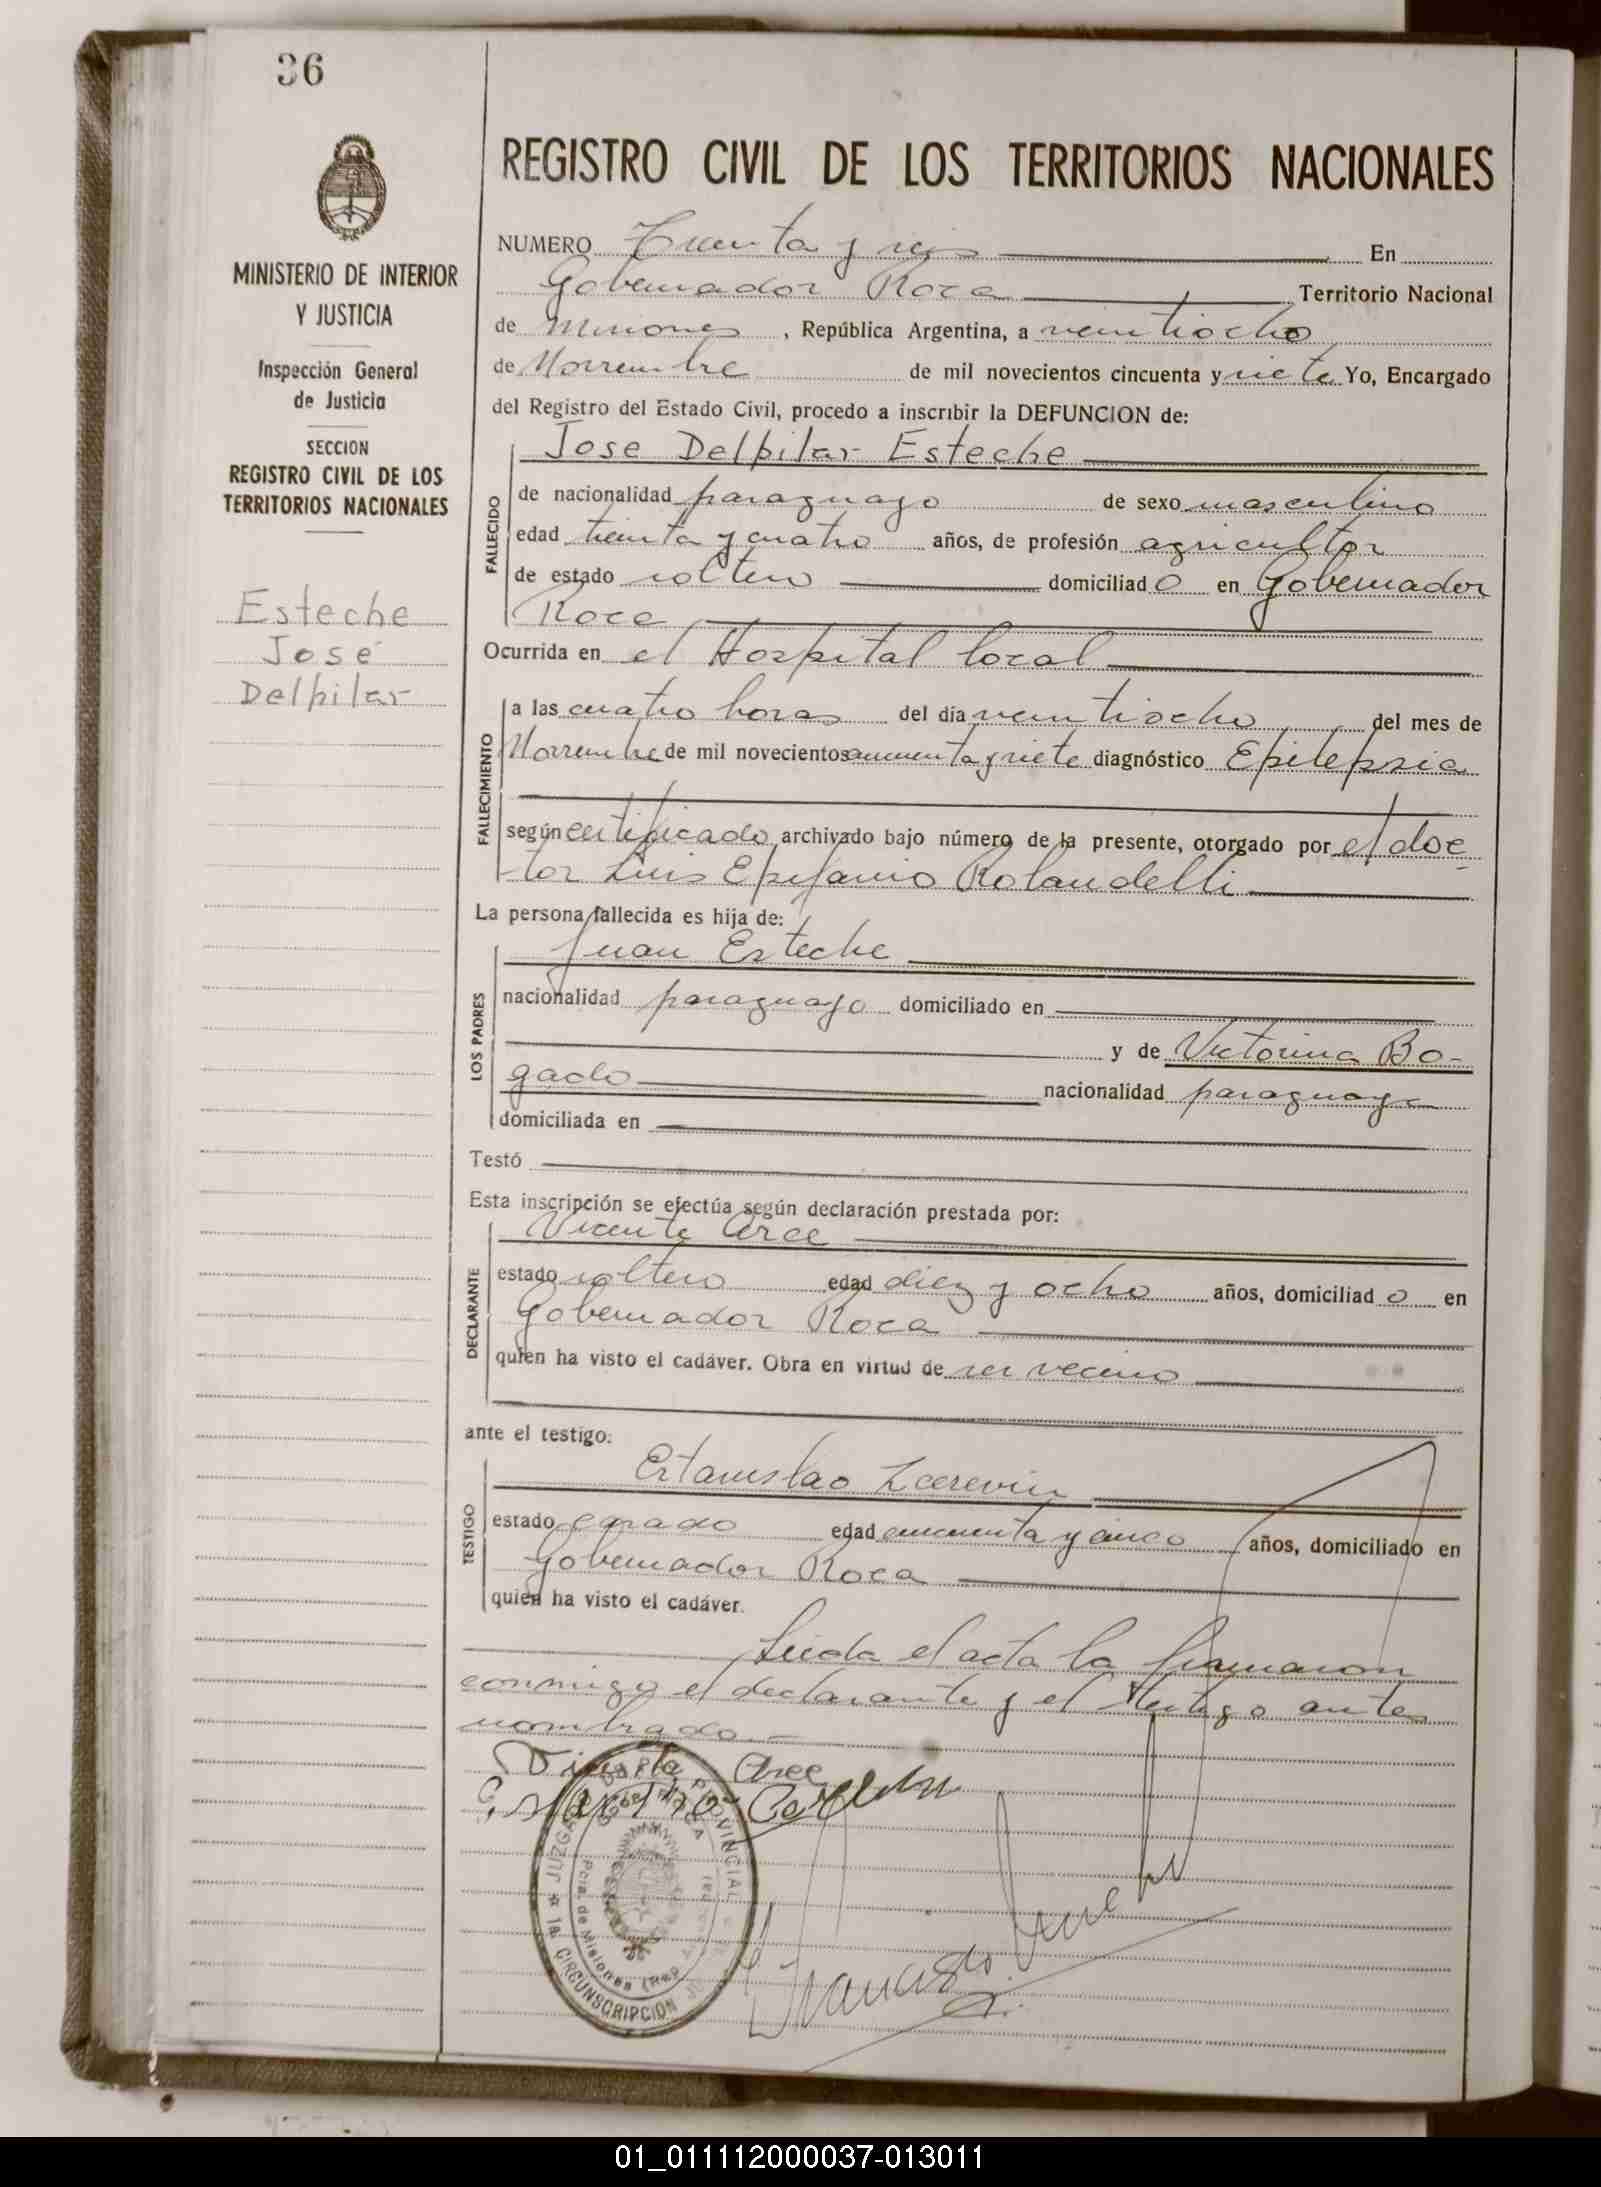 36
MINISTERIO DE INTERIOR
Y JUSTICIA
Inspección General
de Justicia
SECCION
REGISTRO CIVIL DE LOS
TERRITORIOS NACIONALES
Esteche
José
Delpilar
REGISTRO CIVIL DE LOS TERRITORIOS NACIONALES
NUMERO Treinta y seis En
Gobernador Roca Territorio Nacional
de Misiones, República Argentina, a veintiocho
de Noviembre de mil novecientos cincuenta y siete Yo, Encargado
del Registro del Estado Civil, procedo a inscribir la DEFUNCION de:
FALLECIDO
Jose Delpilar Esteche
de nacionalidad paraguayo de sexo masculino
edad treinta y cuatro años, de profesión agricultor
de estado soltero domiciliado en Gobernador
Roca
Ocurrida en el Hospital local
FALLECIMIENTO
a las cuatro horas del día veintiocho del mes de
Noviembre de mil novecientos cincuenta y siete diagnóstico Epilepsia
según certificado archivado bajo número de la presente, otorgado por el doc-
tor Luis Epifanio Rolandelli
La persona fallecida es hija de:
LOS PADRES
Juan Esteche
nacionalidad paraguayo domiciliado en
y de Victorina Bo-
gado nacionalidad paraguaya
domiciliada en
Testó
Esta inscripción se efectúa según declaración prestada por:
DECLARANTE
Vicente Arce
estado soltero edad diez y ocho años, domiciliado en
Gobernador Roca
quien ha visto el cadáver. Obra en virtud de ser vecino
ante el testigo:
TESTIGO
Estanislao
estado casado edad cincuenta y cinco años, domiciliado en
Gobernador Roca
quien ha visto el cadáver.
Leida el acta la firmaron
conmigo el declarante y el testigo antes
nombrado.-
Vicente Arce
JUZGADO PROVINCIAL
1a. CIRCUNSCRIPCION
Pcia. de Misiones (Rep.
Francisco
01_011112000037-013011